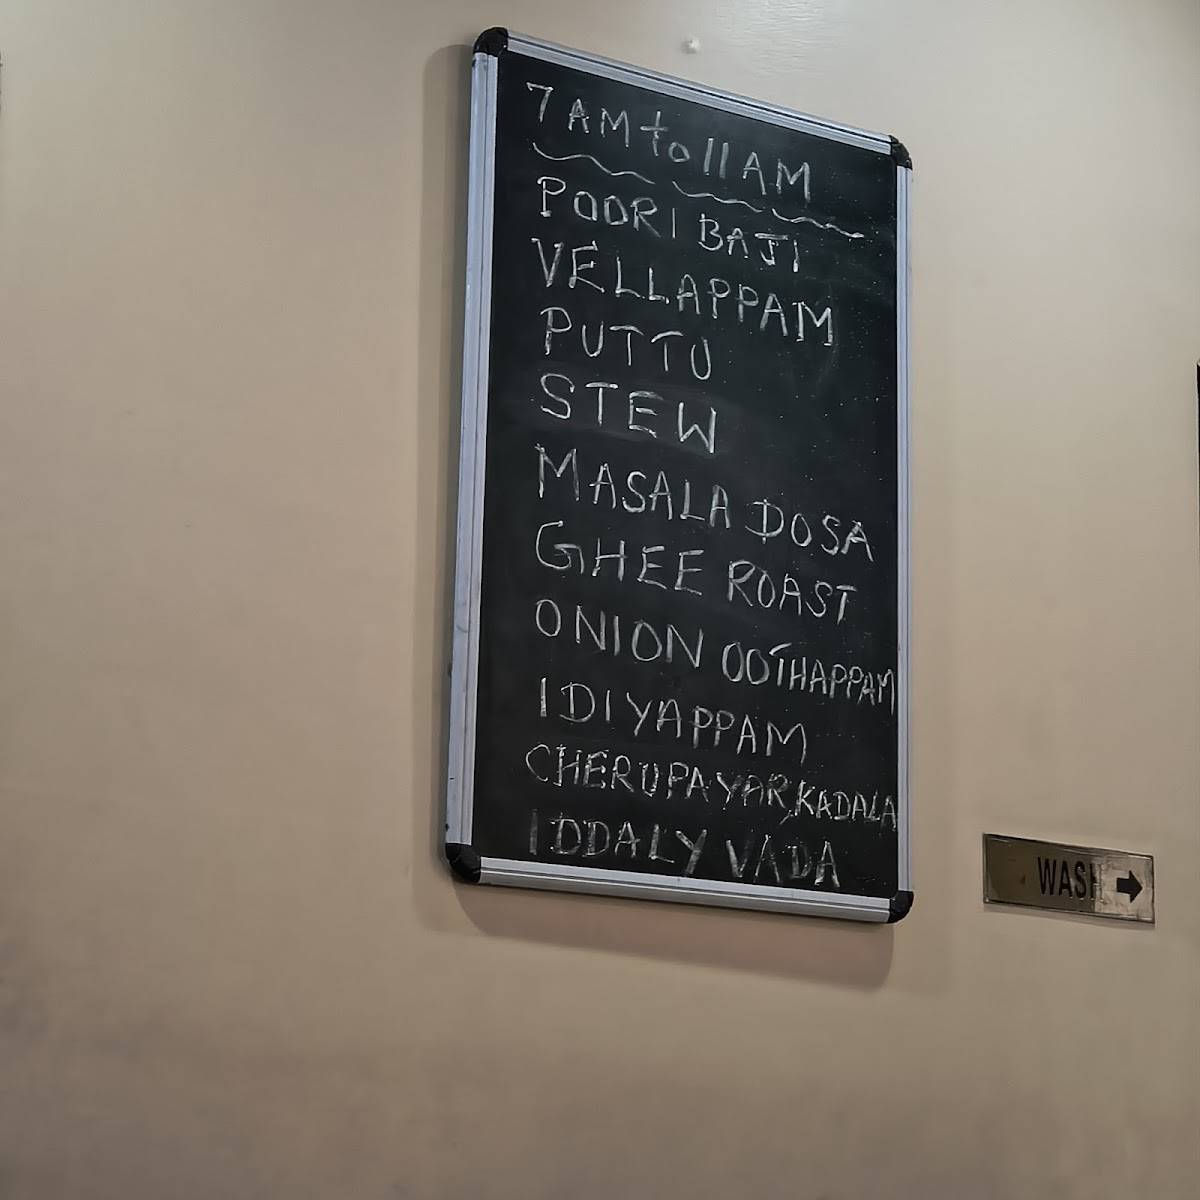 7AM to 11AM
POORI BAJI
VELLAPPAM
PUTTU
STEW
MASALA DOSA
GHEE ROAST
ONION OOTHAPPAM
IDIYAPPAM
CHERUPAYAR, KADALA
IDDALY VADA
WASH